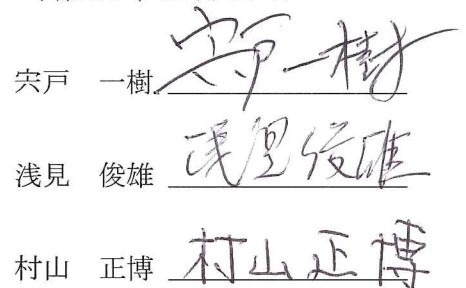 宍戸 一樹 宍戸一樹
浅見 俊雄 浅見俊雄
村山 正博 村山正博